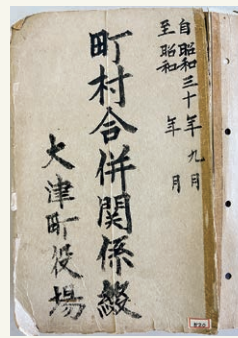 自昭和三十年九月
至昭和 年 月
町村合併関係綴
大津町役場